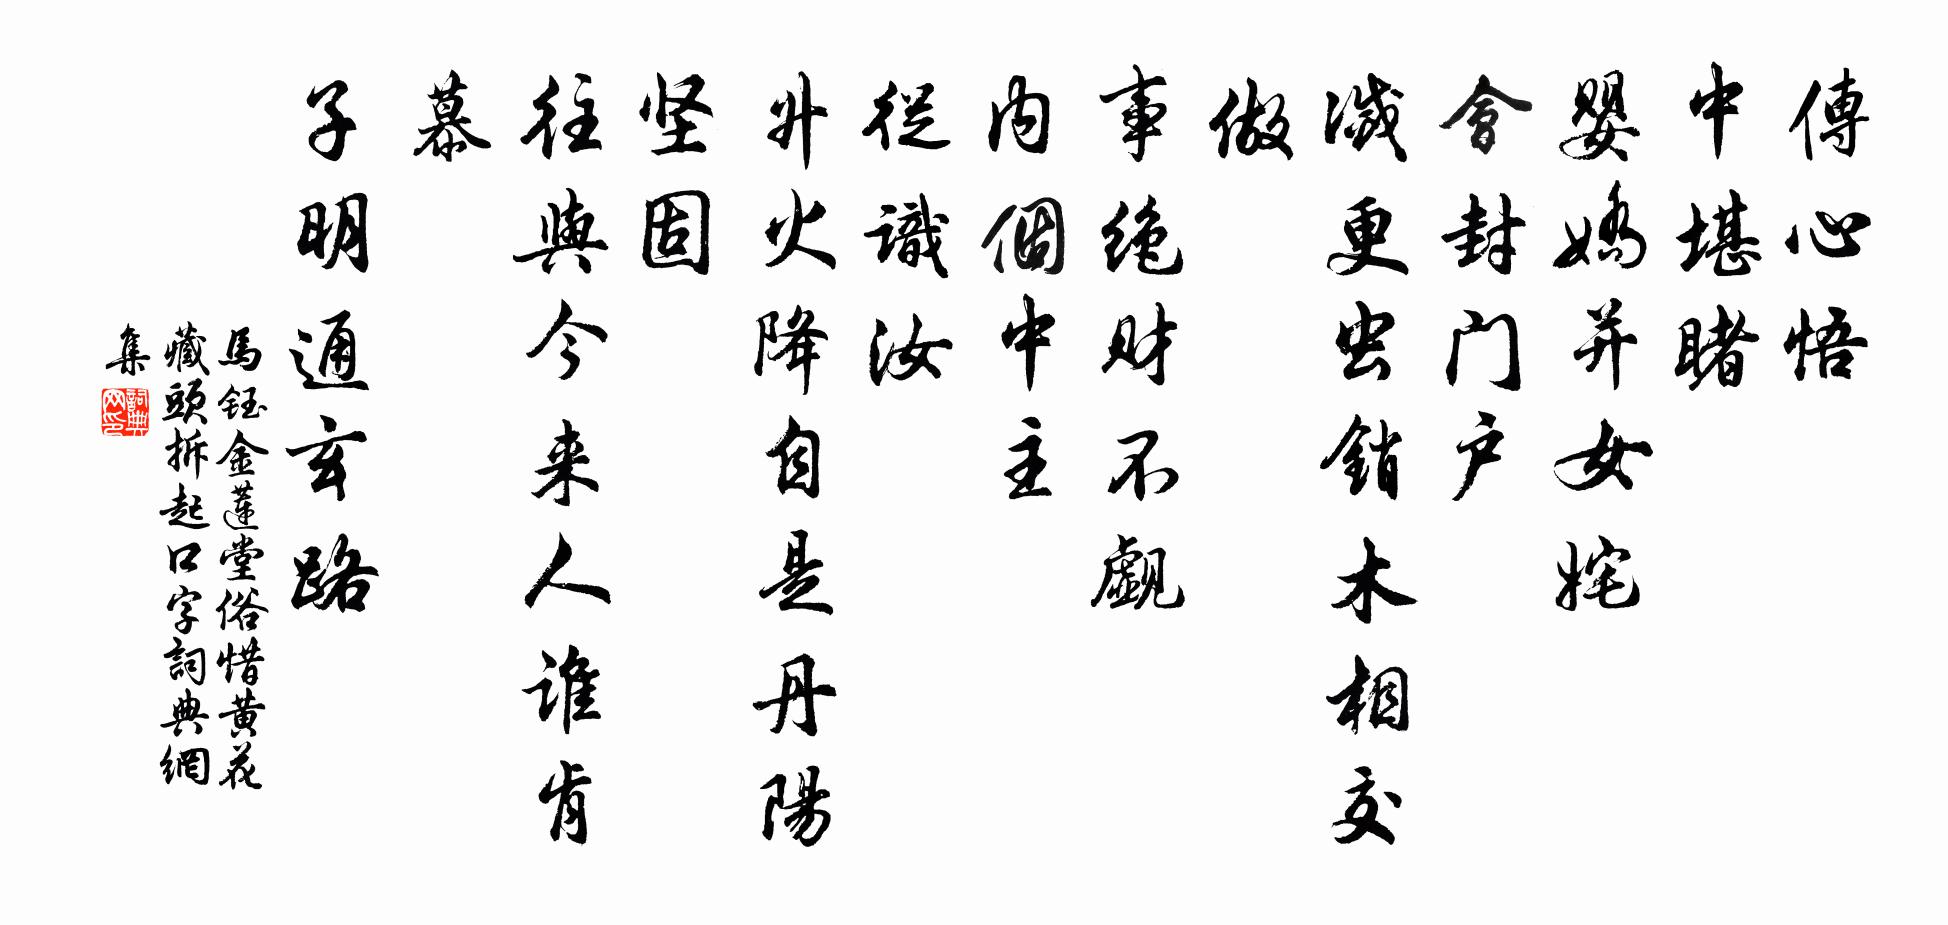 傳心悟
中堪睹
嬰嬌并女姹
會封门户
滅更虫銷木相交
做
事绝财不覷
内個中主
從識汝
升火降自是丹陽
坚固
往與今来人谁肯
慕
子明通玄路
馬鈺金蓮堂俗惜黄花
藏頭拆起口字詞典網
集
詞典网印